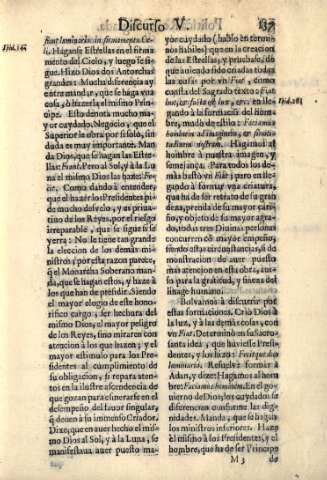 Discurso V.
137
Ibid. 144
fiant luminaria in firmamento Cæ-
li. Háganse Estrellas en el firma
mento del Cielo, y luego se si-
gue. Hizo Dios dos Antorchas
grandes: Mucha diferencia ay
entre mandar, que se haga vna
cosa, ò hazerla el mismo Prin-
cipe. Esto denota mucho ma-
yor cuydado. Negocio, que el
Superior le obra por si solo, sin
duda es muy importante. Man
da Dios, que se hagan las Estre-
llas: Fiant. Pero al Sol, y à la Lu
na el mismo Dios las haze: Fe-
cit. Como dando à entender,
que el hazer los Presidentes pi-
de mucho desvelo, y es priua-
tiuo de los Reyes, por el riesgo
irreparable, que se sigue si se
yerra: No le tiene tan grande
la eleccion de los demàs mi-
nistros; por esta razon parece,
q̃ el Monarcha Soberano man-
da, que se hagan estos, y haze à
los que han de presidir. Siendo
el mayor elogio de este hono-
rifico cargo, ser hechura del
mismo Dios, el mayor peligro
de los Reyes, sino miraren con
atencion à los que hazen; y el
mayor estimulo para los Pre-
sidentes al cumplimiento de
su obligacion, si repara aten-
tos en la ilustre ascendencia de
que gozan para esmerarse en el
desempeño del fauor singular,
q̃ deuen à su inmenso Criador.
Dize, que en auer hecho el mis-
mo Dios al Sol, y à la Luna, se
manifestaua auer puesto ma-
yor cuydado (hablo en termi-
nos habiles) que en la creacion
de las Estrellas, y prueualo, de
que auiendo sido criadas todas
las cosas por vn Fiat, como
consta del Sagrado texto: Fiat
lux, &c. en lle-
gando à la formacion del Hom-
bre, mudò de estilo: Faciamus
hominem ad imaginem, & simili-
tudinem nostram. Hagamos al
hombre à nuestra imagen, y
semejança. Para todos los de-
màs bastò vn Fiat; pero en lle-
gando à formar vna criatura,
que ha de ser retrato de su gran
deza, prenda de su mayor cari-
ño, y objeto de su mayor agra-
do, todas tres Diuinas personas
concurren cõ mayor empeño,
siendo estas circunstancias, de-
monstracion de auer puesto
mas atencion en esta obra, aui-
so para la gratitud, y fineza del
linage humano.
Ibid. 281
Boluamos à discurrir por
estas formaciones. Criò Dios à
la luz, y à las demàs cosas, con
vn Fiat. Determinò en su sacro-
santa idea, que huviesse Presi-
dentes, y los hizo: Fecitque duo
luminaria. Resuelve formar à
Adan, y dize: Hagamos al hom
bre: Faciamus hominem. En el go
uierno de Dios, los cuydados se
diferencian conforme las dig-
nidades. Manda, que se hagan
los ministros inferiores. Haze
èl mismo à los Presidentes, y el
hombre, que ha de ser Principe
M 3
de